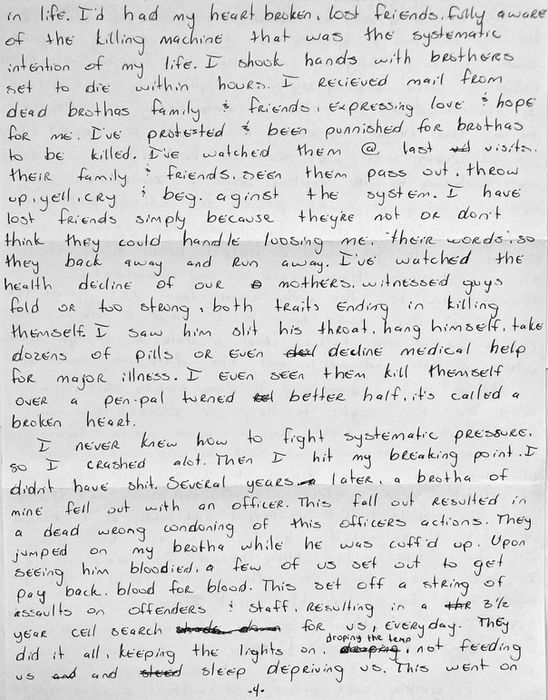 in life. I'd had my heart broken, lost friends, fully aware
of the killing machine that was the systematic
intention of my life. I shook hands with brothers
set to die within hours. I recieved mail from
dead brothas family & friends, expressing love & hope
for me. I've protested & been punnished for brothas
to be killed. I've watched them @ last visits.
their family & friends, seen them pass out, throw
up, yell, cry & beg. aginst the system. I have
lost friends simply because theyre not or don't
think they could handle loosing me, "their words", so
they back away and run away. I've watched the
health decline of our mothers, witnessed guys
fold or too strong, both traits ending in killing
themself. I saw him slit his throat, hang himself, take
dozens of pills or even decline medical help
for major illness. I even seen them kill themself
over a pen-pal turned better half, it's called a
broken heart.
I never knew how to fight systematic pressure,
so I crashed alot. Then I hit my breaking point. I
didnt have shit. Several years later, a brotha of
mine fell out with an officer. This fall out resulted in
a dead wrong condoning of this officers actions. They
jumped on my brotha while he was cuff'd up. Upon
seeing him bloodied, a few of us set out to get
pay back, blood for blood. This set off a string of
assaults on offenders & staff, resulting in a 3 1/2
year cell search for us, everyday. They
did it all, keeping the lights on, droping the temp, not feeding
us and sleep depriving us. This went on
-4-